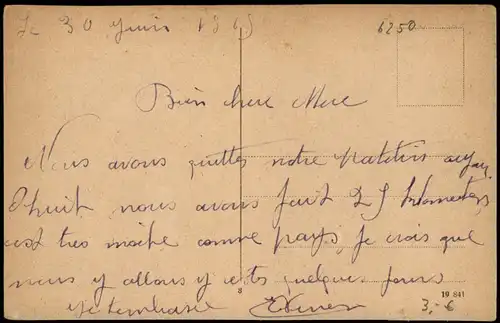 Le 30 Juin 19
6250
Bien chere Mere
Nous avons quittes notre patelin auj
dhuit nous avons fait 25 kilometers
cest tres moche comme pays, je crois que
nous y allons y restes quelques jours
je tembrasse
8
19 841
3,- €